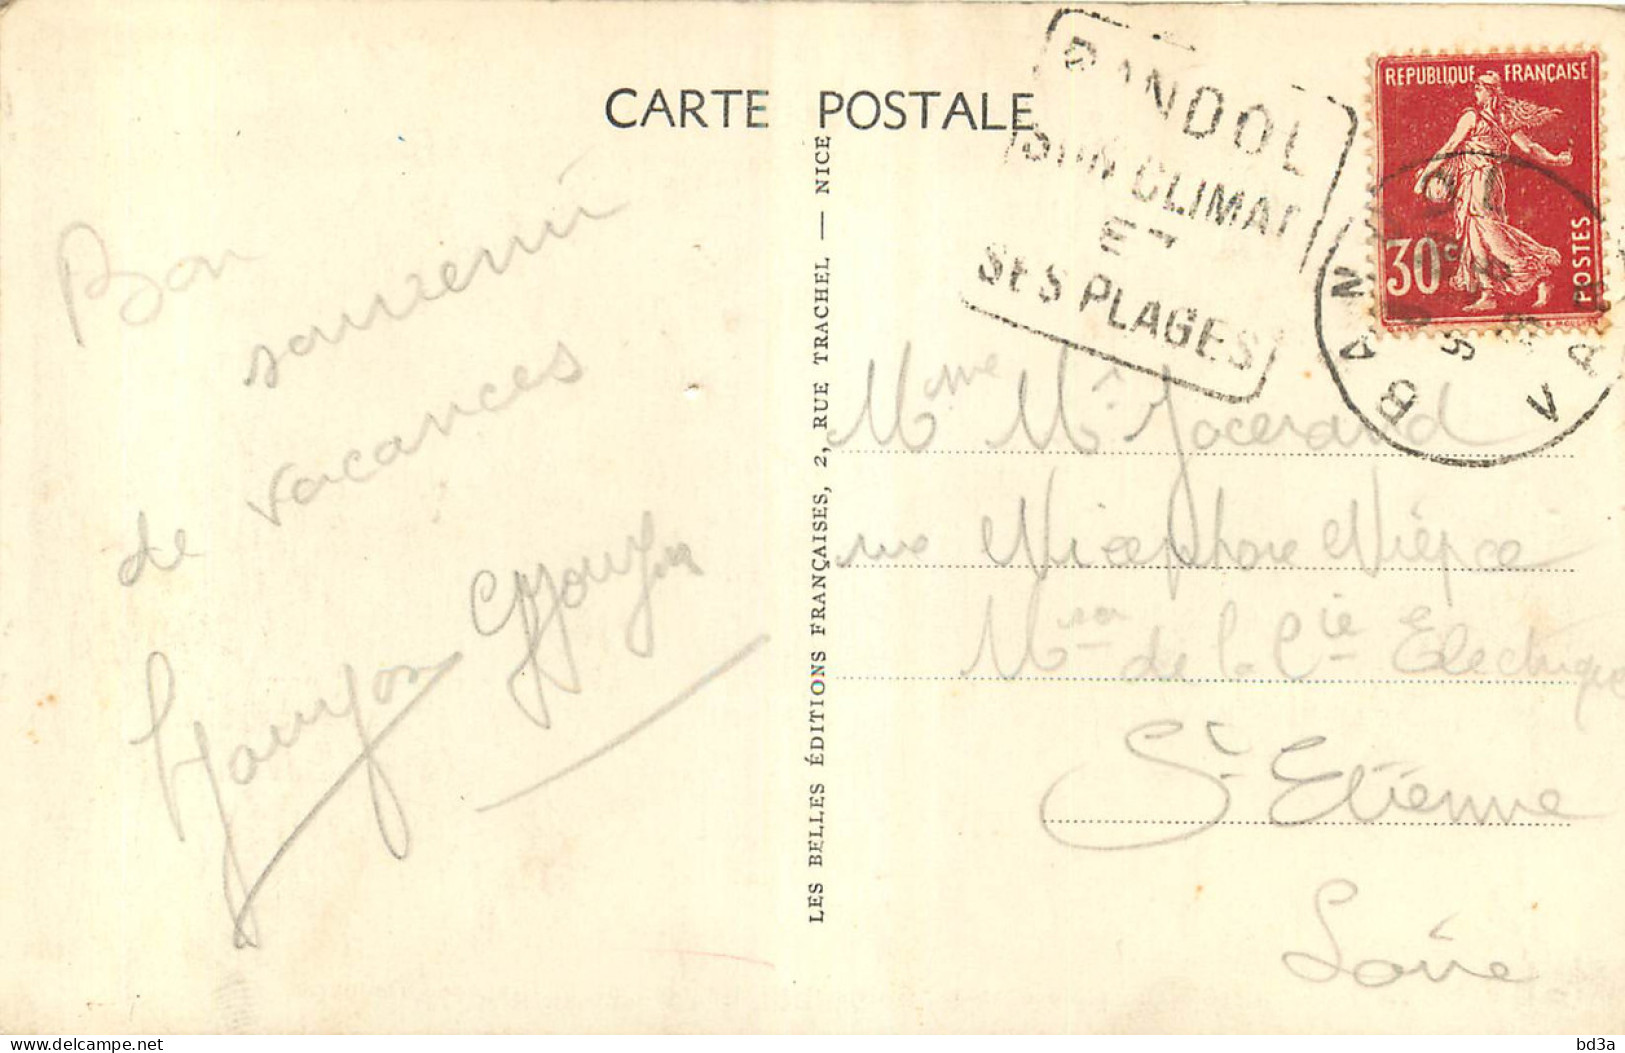 CARTE POSTALE
BANDOL
SON CLIMAT
ET
SES PLAGES
REPUBLIQUE FRANÇAISE
30c
POSTES
BANDOL
VAR
Bon
souvenir
de vacances
LES BELLES ÉDITIONS FRANÇAISES, 2, RUE TRACHEL — NICE
Mme Mce Jacerand
rue Nicephore Niépce
Mson de la Cie Electrique
St Etienne
Loire
delcampe.net
bd3a